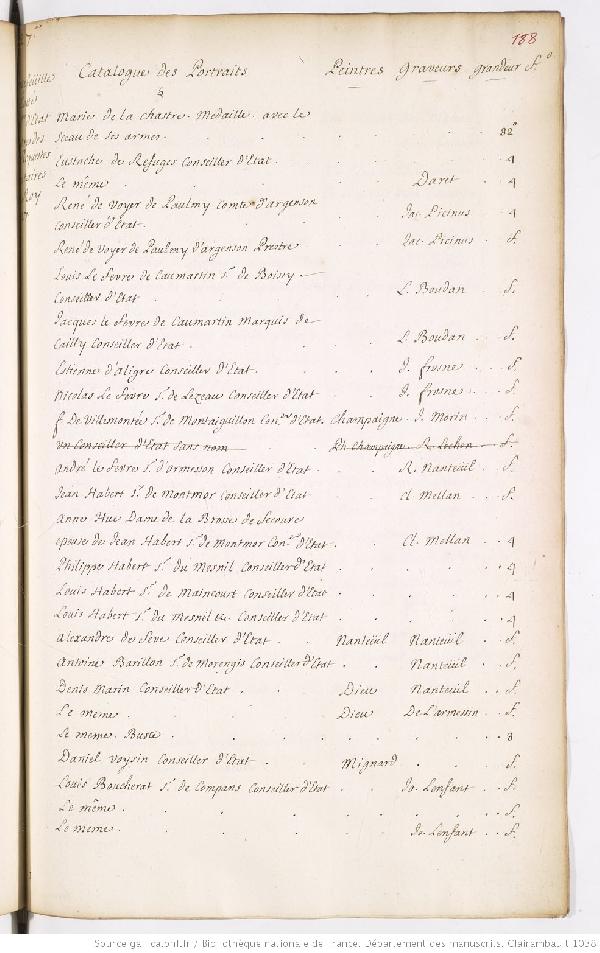 188
Catalogue des Portraits Peintres Graveurs grandeur f.o
Marie de la chastre. Medaille avec le
sceau de ses armes. 82o
Eustache de Refuges Conseiller d'Etat. 4
Le même Daret 4
René de Voyer de Paulmy Comte d'argenson
Conseiller d'Etat. Jac. Picinus 4
René de Voyer de Paulmy d'argenson Prestre Jac. Picinus f.
Louis Le fevre de Caumartin Sr. de Boissy
Conseiller d'Etat L. Boudan f.
Jacques le fevre de Caumartin Marquis de
Cailly Conseiller d'Etat. L. Boudan f.
Estienne d'aligre Conseiller d'Etat. J. frosne f.
Nicolas Le fevre Sr. de Lezeau Conseiller d'Etat J. frosne f.
f. De Villemontée Sr. de Montaiguillon Con.er d'Etat. Champaigne J. Morin f.
Un Conseiller d'Etat sans nom Ph. Champaigne R. Lochon f.
andré le fevre Sr. d'ormesson Conseiller d'Etat R. Nanteüil f.
Jean Habert Sr. de Montmor Conseiller d'Etat Cl. Mellan f.
Anne Hue Dame de la Brosse de
epouse de Jean Habert Sr. de Montmor Con.er d'Etat. Cl. Mellan 4
Philippe Habert Sr. du Mesnil Conseiller d'Etat 4
Louis Habert Sr. de Maincourt Conseiller d'Etat 4
Louis Habert Sr. du Mesnil &c. Conseiller d'Etat 4
Alexandre de Seve Conseiller d'Etat Nanteüil Nanteüil f.
Antoine Barillon Sr. de Morengis Conseiller d'Etat Nanteüil f.
Denis Marin Conseiller d'Etat Dieu Nanteüil f.
Le meme Dieu De Larmessin f.
Le meme Buste 8
Daniel Voysin Conseiller d'Etat Mignard f.
Louis Boucherat Sr. de Compans Conseiller d'Etat Jo. Lenfant f.
Le même f.
Le meme Jo. Lenfant f.
Source gallica.bnf.fr / Bibliothèque nationale de France. Département des manuscrits. Clairambault 1038